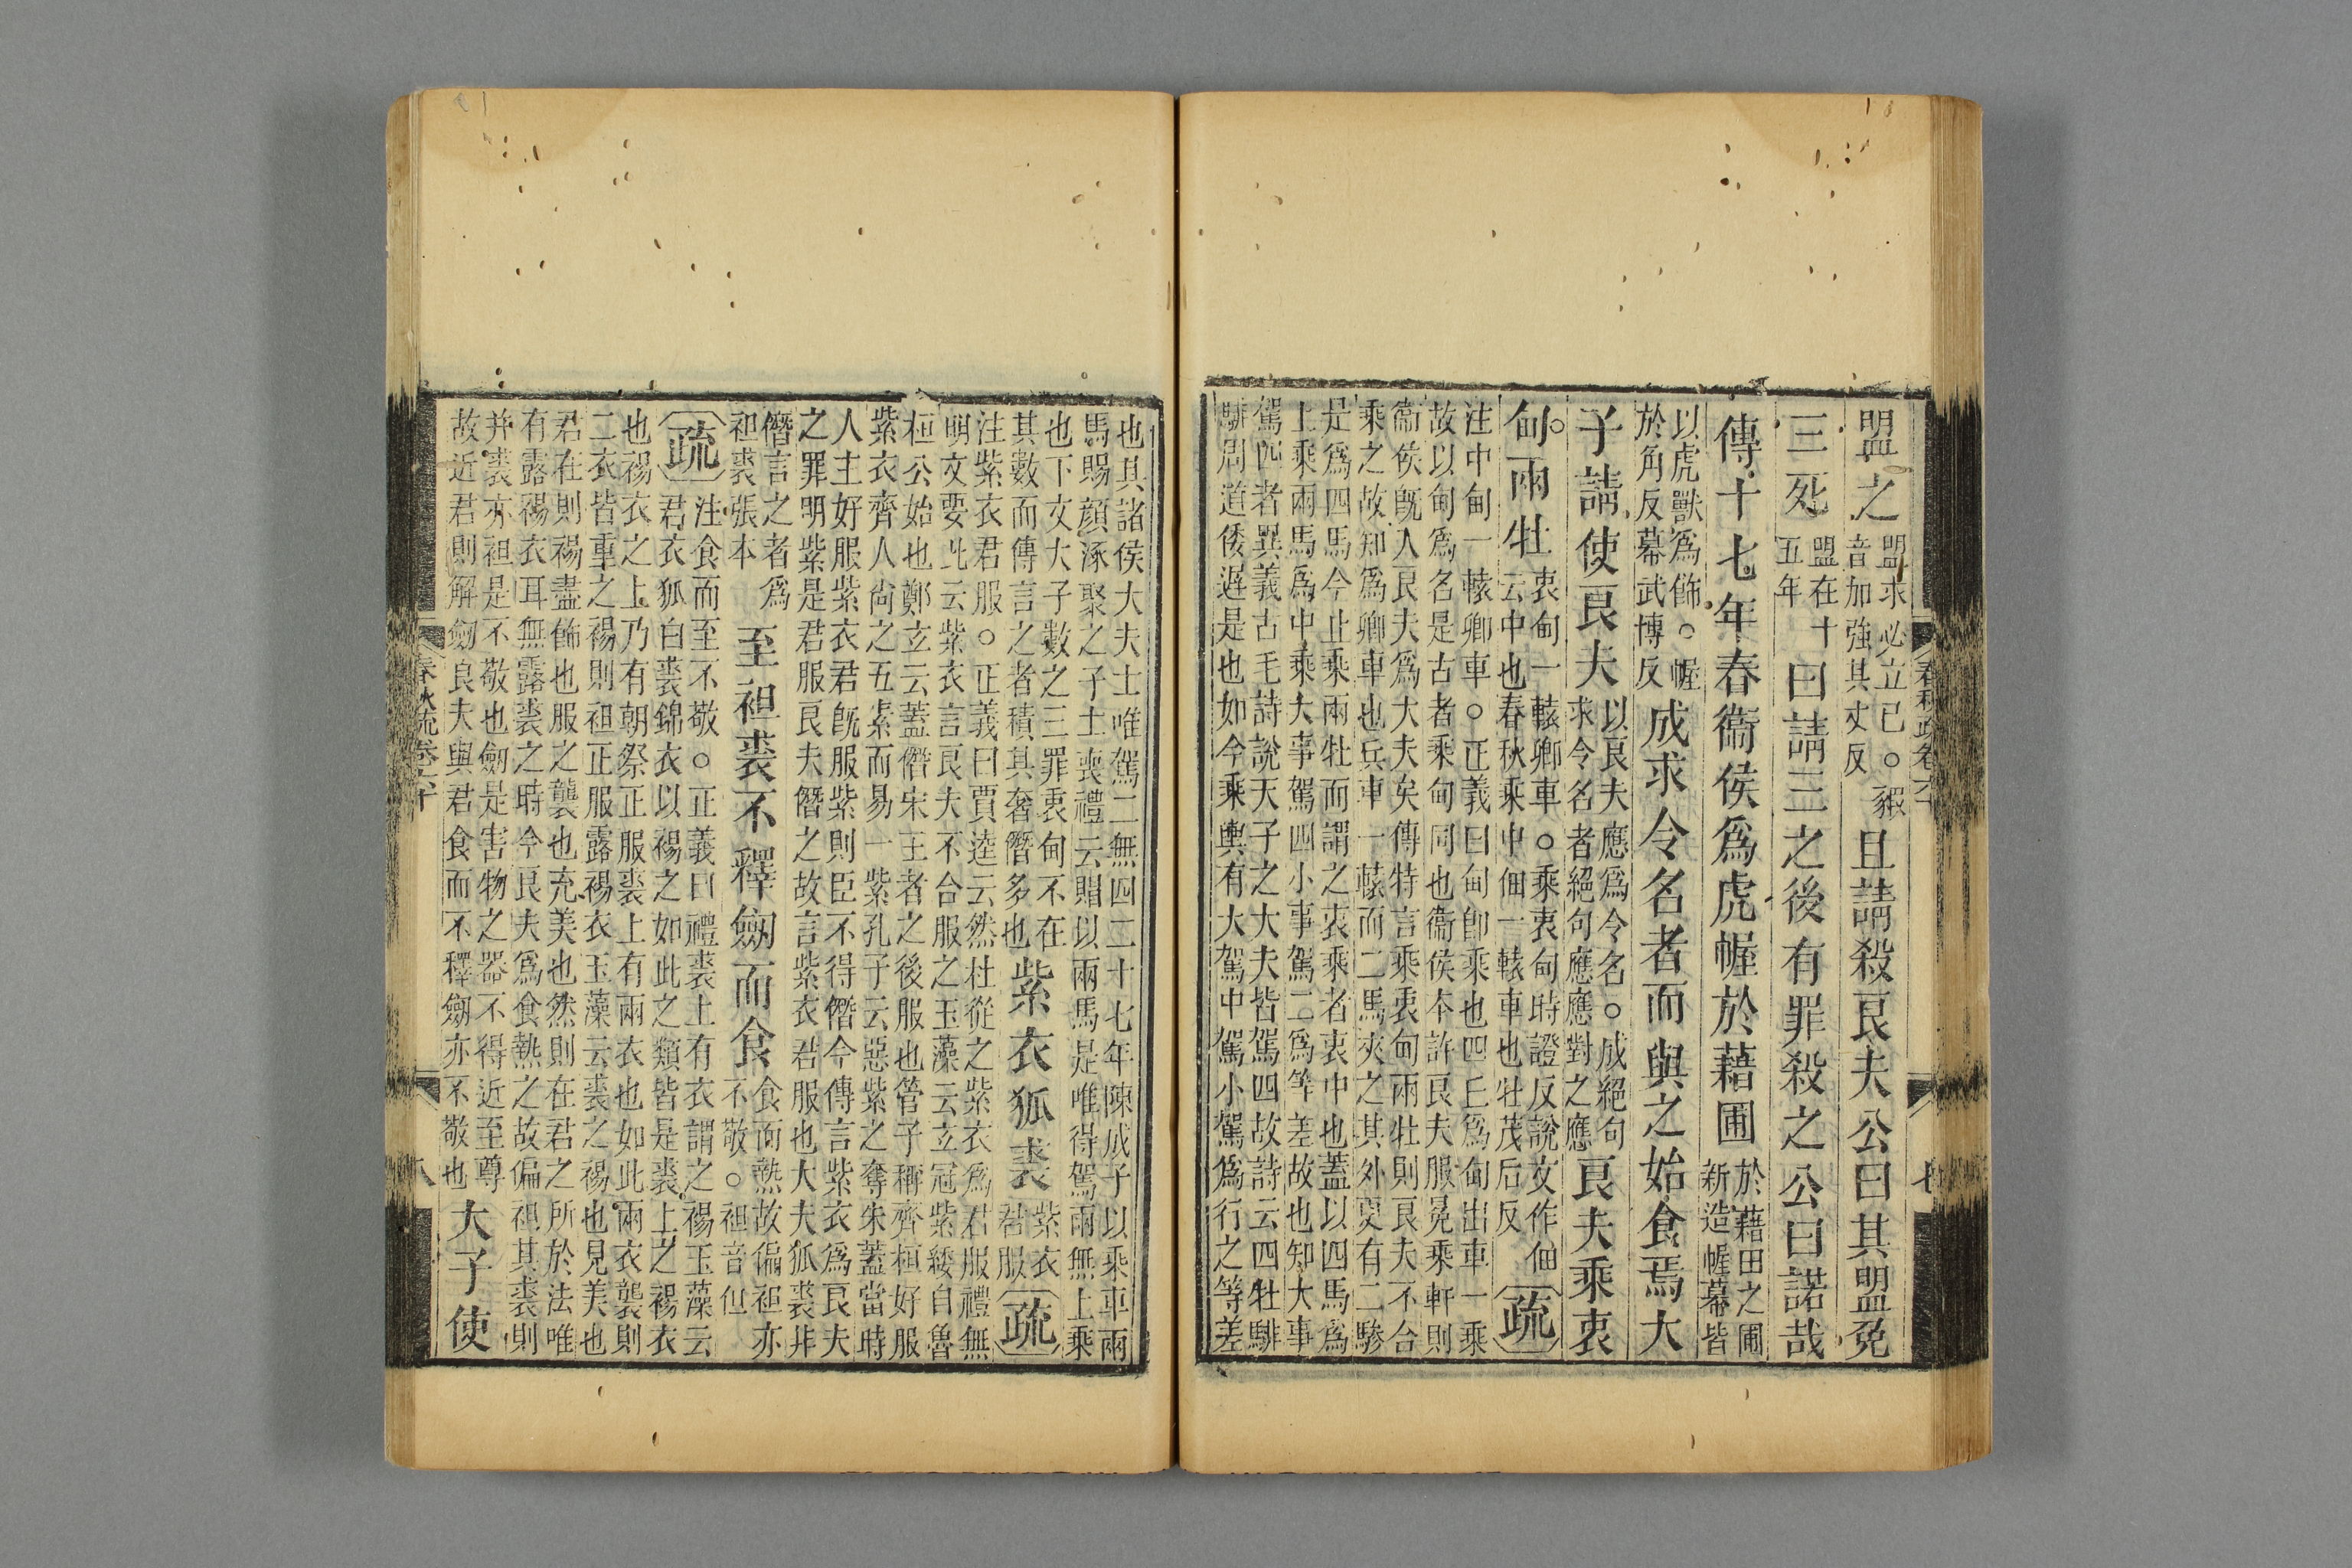 春秋疏卷六十
七
盟之
盟求必立已。豭
音加強其丈反
且請殺良夫公曰其盟免
三死
盟在十
五年
曰請三之後有罪殺之公曰諾哉
傳十七年春衞侯爲虎幄於藉圃
於藉田之圃
新造幄幕皆
以虎獸爲飾。幄
於角反幕武博反
成求令名者而與之始食焉大
子請使良夫
以良夫應爲令名。成絕句
求令名者絕句應應對之應
良夫乘衷
甸兩牡
衷甸一轅卿車。乘衷甸時證反說文作佃
云中也春秋乘中佃一轅車也牡茂后反
疏
注中甸一轅卿車。正義曰甸卽乘也四丘爲甸出車一乘
故以甸爲名是古者乘甸同也衞侯本許良夫服冕乘軒則
衞侯旣入良夫爲大夫矣傳特言乘衷甸兩牡則良夫不合
乘之故知爲卿車也兵車一轅而二馬夾之其外更有二驂
是爲四馬今止乘兩牡而謂之衷乘者衷中也蓋以四馬爲
上乘兩馬爲中乘大事駕四小事駕二爲等差故也知大事
駕四者異義古毛詩說天子之大夫皆駕四故詩云四牡騑
騑周道倭遲是也如今乘輿有大駕中駕小駕爲行之等差
也其諸侯大夫士唯駕二無四二十七年陳成子以乘車兩
馬賜顏涿聚之子士喪禮云賵以兩馬是唯得駕兩無上乘
也下文大子數之三罪衷甸不在
其數而傳言之者積其奢僭多也
紫衣狐裘
紫衣
君服
疏
注紫衣君服。正義曰賈逵云然杜從之紫衣爲君服禮無
明文要此云紫衣言良夫不合服之玉藻云玄冠紫緌自魯
桓公始也鄭玄云蓋僭宋王者之後服也管子稱齊桓好服
紫衣齊人尚之五素而易一紫孔子云惡紫之奪朱蓋當時
人主好服紫衣君旣服紫則臣不得僭今傳言紫衣爲良夫
之罪明紫是君服良夫僭之故言紫衣君服也大夫狐裘非
僭言之者爲
袒裘張本
至袒裘不釋劒而食
食而熱故偏袒亦
不敬。袒音但
疏
注食而至不敬。正義曰禮裘上有衣謂之裼玉藻云
君衣狐白裘錦衣以裼之如此之類皆是裘上之裼衣
也裼衣之上乃有朝祭正服裘上有兩衣也如此兩衣襲則
二衣皆重之裼則袒正服露裼衣玉藻云裘之裼也見美也
君在則裼盡飾也服之襲也充美也然則在君之所於法唯
有露裼衣耳無露裘之時今良夫爲食熱之故偏袒其裘則
并裘亦袒是不敬也劒是害物之器不得近至尊
故近君則解劒良夫與君食而不釋劒亦不敬也
大子使
春秋疏卷六十
八